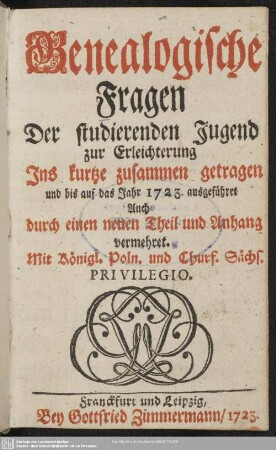 Genealogische
Fragen
Der studierenden Jugend
zur Erleichterung
Ins kurtze zusammen getragen
und bis auf das Jahr 1723. ausgeführet
Auch
durch einen neuen Theil und Anhang
vermehret.
Mit Königl. Poln. und Churf. Sächs.
PRIVILEGIO.
Franckfurt und Leipzig,
Bey Gottfried Zimmermann/ 1723.